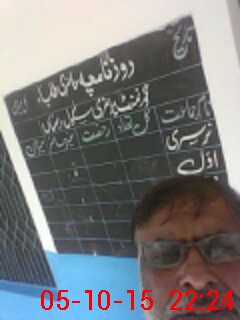 تاریخ
روزنامچہ حاضری طلباء
گورنمنٹ پرائمری سکول
نام جماعت کل تعداد رخصت غیر حاضر میزان
نرسری
اوّل
05-10-15 22:24